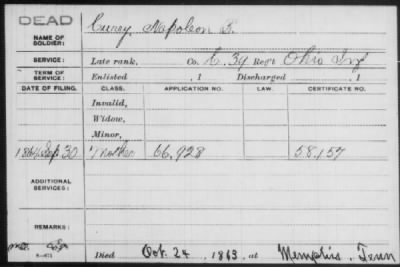 DEAD
NAME OF SOLDIER: Curey, Napoleon F.
SERVICE: Late rank, Co. E. 39 Reg't Ohio Inf
TERM OF SERVICE: Enlisted , 1 Discharged , 1
DATE OF FILING. CLASS. APPLICATION NO. LAW. CERTIFICATE NO.
Invalid,
Widow,
Minor,
1864 Sep 30 Mother 66,928 58,157
ADDITIONAL SERVICES:
REMARKS:
Died Oct. 24, 1863, at Memphis, Tenn